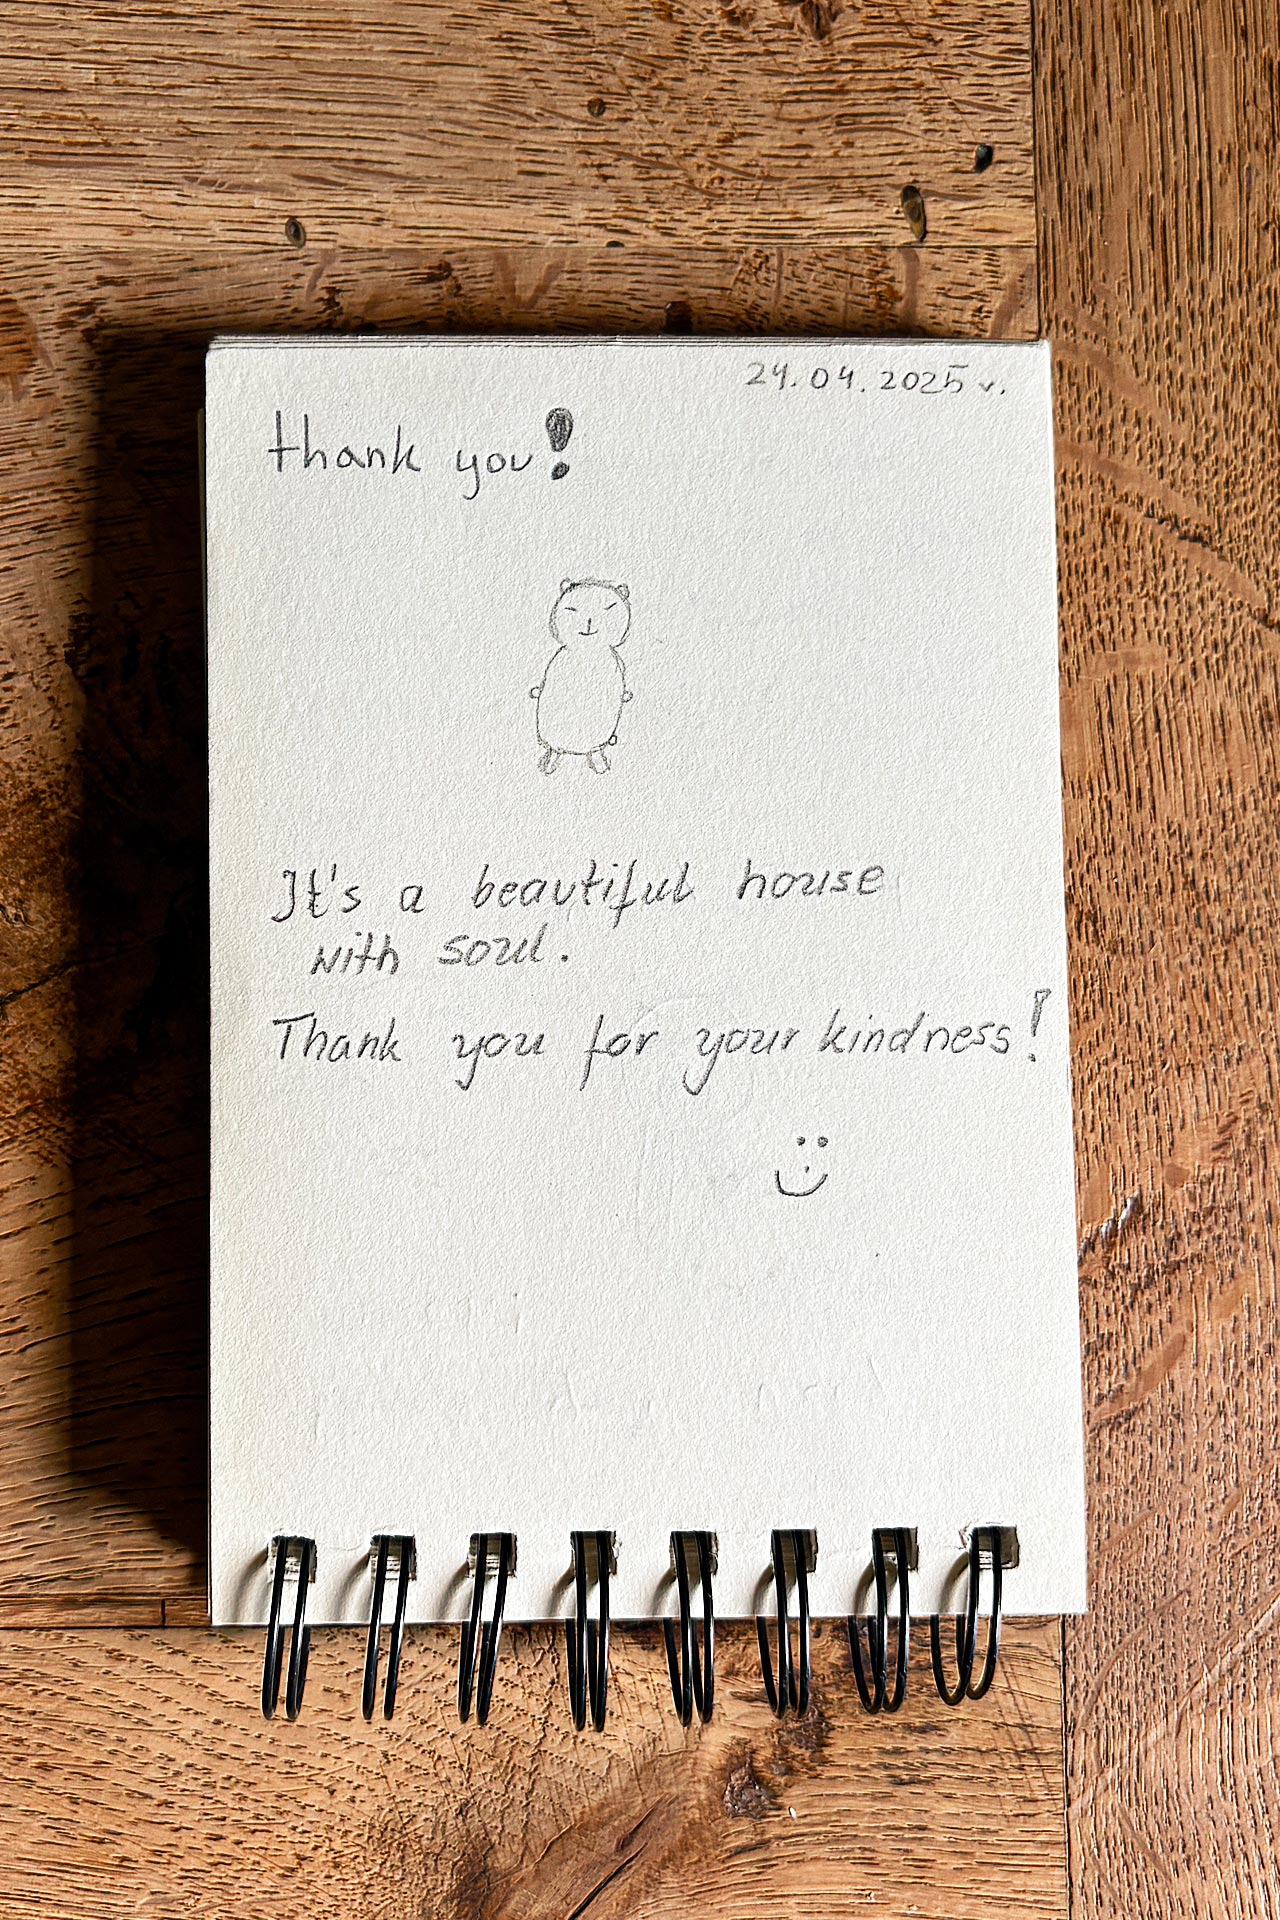 24.04.2025 v.
thank you!
It's a beautiful house
with soul.
Thank you for your kindness!